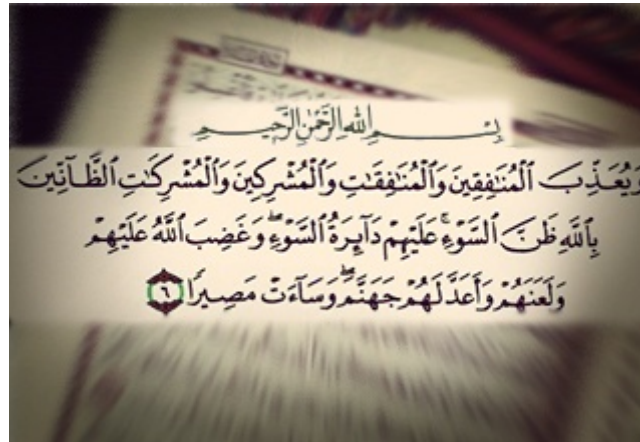 بِسْمِ ٱللَّهِ ٱلرَّحْمَٰنِ ٱلرَّحِيمِ
وَيُعَذِّبَ ٱلْمُنَٰفِقِينَ وَٱلْمُنَٰفِقَٰتِ وَٱلْمُشْرِكِينَ وَٱلْمُشْرِكَٰتِ ٱلظَّآنِّينَ
بِٱللَّهِ ظَنَّ ٱلسَّوْءِ ۚ عَلَيْهِمْ دَآئِرَةُ ٱلسَّوْءِ ۖ وَغَضِبَ ٱللَّهُ عَلَيْهِمْ
وَلَعَنَهُمْ وَأَعَدَّ لَهُمْ جَهَنَّمَ ۖ وَسَآءَتْ مَصِيرًا ٦